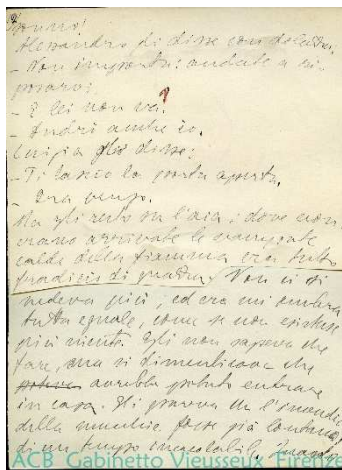 sonno!
Alessandro gli disse con dolcezza:
- Non importa: andate a ri-
posarvi.
- E lei non va?
- Andrò anche io.
Luigia gli disse:
- Ti lascio la porta aperta.
- Ora vengo.
Ma gli restò su l'aia; dove non
erano arrivate le vampate
calde della fiamma era tutto
fradicio di guazza. Non ci si
vedeva più, ed era un'ombra
tutta eguale, come se non esistesse
più niente. Egli non sapeva che
fare, ma si dimenticava che
poteva avrebbe potuto entrare
in casa. Gli pareva che l'incendio
della mucchia fosse più lontano
di un tempo incalcolabile. Quando
ACB Gabinetto Vieusseux Firenze